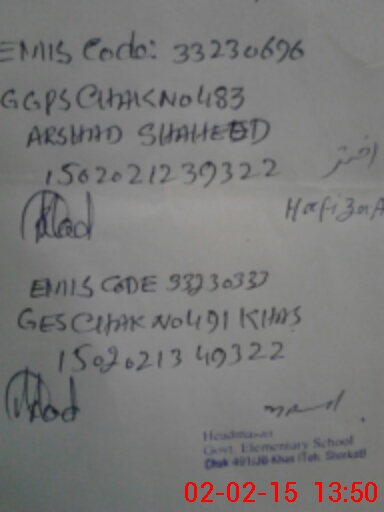 EMIS Code: 33230696
GGPS CHAK NO 483
ARSHAD SHAHEED
1502021239322
اختر
Hafiza A
EMIS CODE 33230337
GES CHAK NO 491 KHAS
1502021349322
Headmaster
Govt. Elementary School
Chak 491/JB Khas (Teh. Shorkot)
02-02-15 13:50